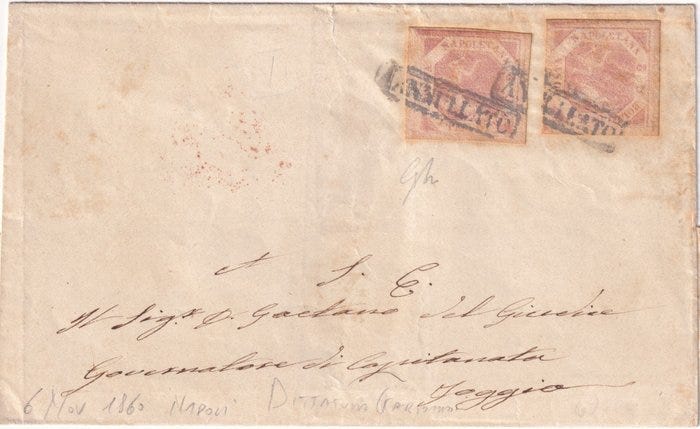 NAPOLETANA
NAPOLETANA
ANNULLATO
ANNULLATO
Gh
A S. E.
Il Sigr. D. Gaetano del Giudice
Governatore di Capitanata
Foggia
6 Nov 1860 Napoli Dittatura